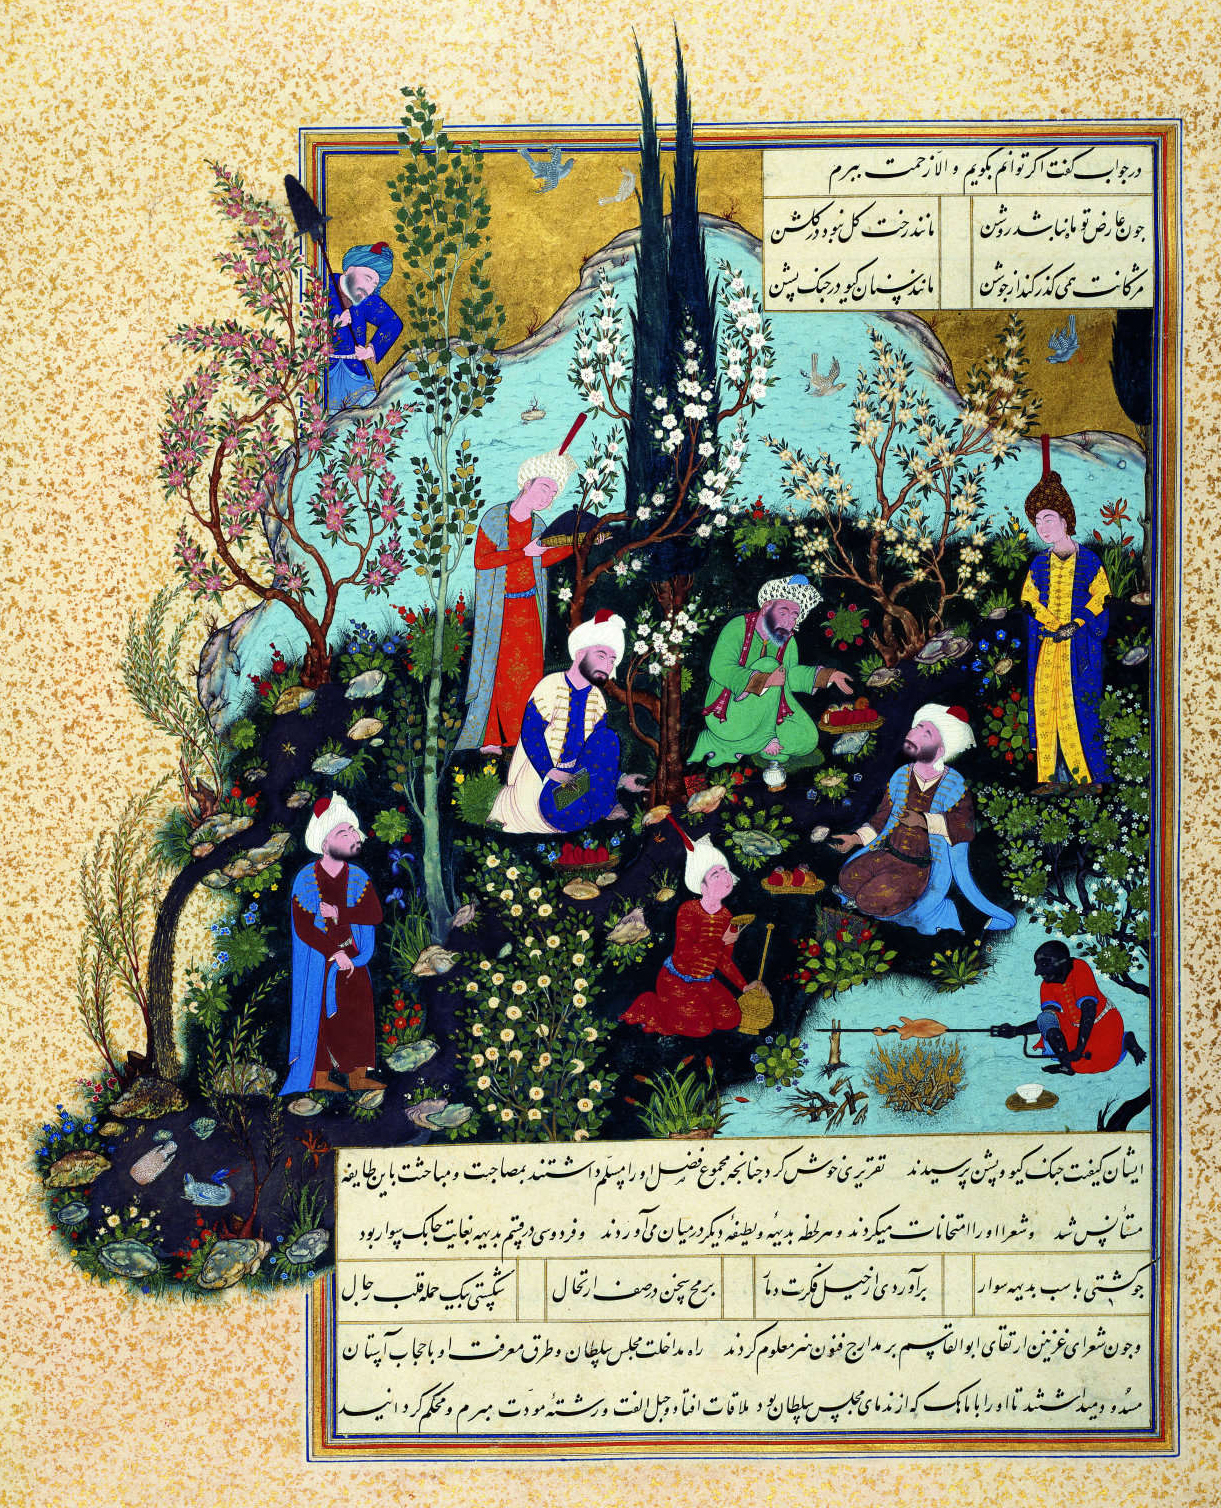 در جواب گفت اگر توانم بگویم و الّا زحمت ببرم
چون عارض تو ماه نباشد روشن مانند رخت گل نبود در گلشن
مژگانت همی گذر کند از جوشن مانند سنان گیو در جنگ پشن
ایشان کیفیت جنگ گیو و پشن پرسیدند تقریری خوش کرد چنانچه مجموع فضل او را مسلّم داشتند بمصاحبت و مباحثت باین طایفه
مستأنس شد و شعرا او را امتحانات میکردند و هر لحظه بدیههٔ و لطیفهٔ دیگر در میان می آوردند و فردوسی در قسم بدیهه بغایت چابک سوار بود
چو گشتی باسب بدیهه سوار برآوردی از خیل فکرت دمار برمح سخن در صف ارتجال شکستی بیک حمله قلب رجال
و چون شعرای غزنین ارتقای ابوالقاسم بر مدارج فنون هنر معلوم کردند راه مداخلت مجلس سلطان و طرق معرفت او با حجاب آستان
مسدود میداشتند تا او را با ماهک که از ندمای مجلس سلطان بود ملاقات افتاد و حبل الفت و رشتهٔ مودّت مبرم و محکم گردانید